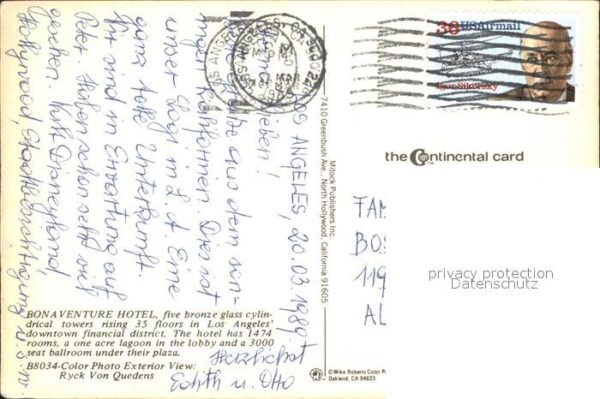 LOS ANGELES, 20.03.1989
Ihr Lieben!
Grüße aus dem son-
nigen Kalifornien. Dies ist
unser Logi in L.A. Eine
ganz tolle Unterkunft.
Wir sind in Erwartung auf
Peter. Haben schon sehr viel
gesehen. Disneyland
Hollywood, Stadtbesichtigung u.s.w.
Herzlichst
Edith u. Otto
BONAVENTURE HOTEL, five bronze glass cylin-
drical towers rising 35 floors in Los Angeles'
downtown financial district. The hotel has 1474
rooms, a one acre lagoon in the lobby and a 3000
seat ballroom under their plaza.
B8034-Color Photo Exterior View:
Ryck Von Quedens
Mitock Publishers Inc.
7410 Greenbush Ave., North Hollywood, California 91605
©Mike Roberts Color P
Oakland, CA 94623
LOS ANGELES, CA
MAR
36 USAirmail
Igor Sikorsky
the Continental card
FAM
BOS
119
AL
privacy protection
Datenschutz